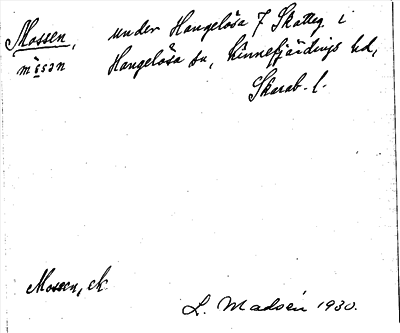 Mossen, under Hangelösa 7 Skatteg. i
mösən Hangelösa sn, Kinnefjärdings hd,
Skarab. l.
Mossen, ek.
L. Madsén 1930.